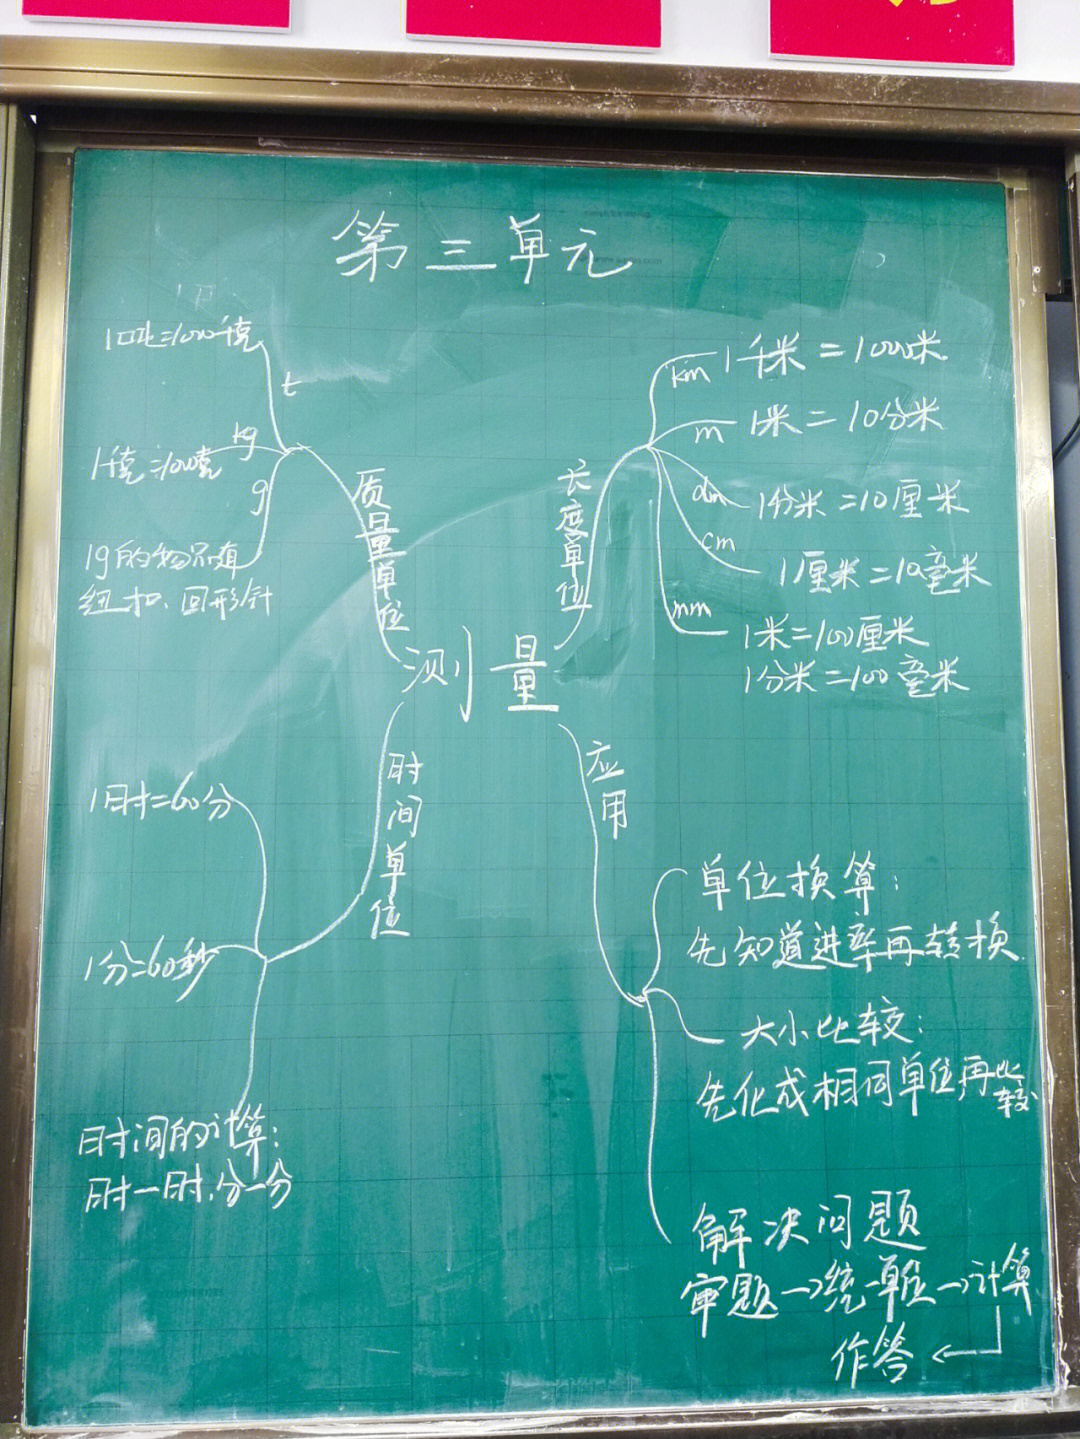 第三单元
测量
质量单位
t
1吨=1000千克
kg
1千克=1000克
g
1g的物品有
纽扣、回形针
长度单位
km
1千米=1000米
m
1米=10分米
dm
1分米=10厘米
cm
1厘米=10毫米
mm
1米=100厘米
1分米=100毫米
时间单位
1时=60分
1分=60秒
时间的计算:
时-时,分-分
应用
单位换算:
先知道进率再转换.
大小比较:
先化成相同单位再比较
解决问题
审题→统一单位→计算
作答